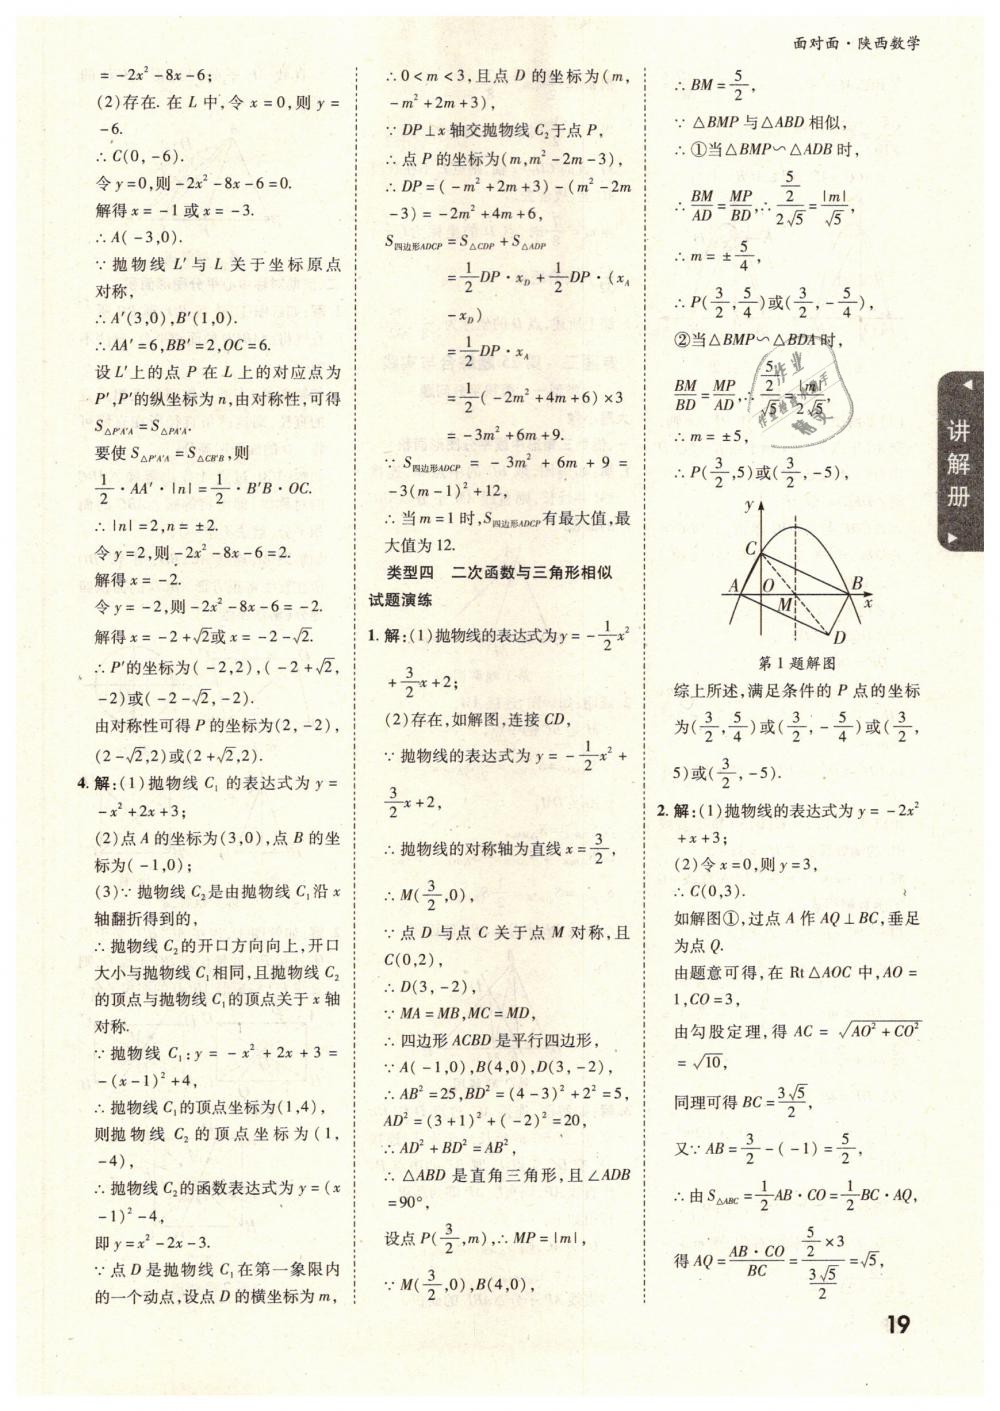 面对面·陕西数学
= -2x² -8x -6;
(2)存在. 在 L 中,令 x = 0,则 y =
-6.
∴ C(0, -6).
令 y = 0,则 -2x² -8x -6 = 0.
解得 x = -1 或 x = -3.
∴ A( -3,0).
∵ 抛物线 L′ 与 L 关于坐标原点
对称,
∴ A′(3,0),B′(1,0).
∴ AA′ = 6,BB′ = 2,OC = 6.
设 L′上的点 P 在 L 上的对应点为
P′,P′的纵坐标为 n,由对称性,可得
S△P′A′A = S△PA′A.
要使 S△P′A′A = S△CB′B,则
1/2 · AA′ · |n| = 1/2 · B′B · OC.
∴ |n| = 2,n = ±2.
令 y = 2,则 -2x² -8x -6 = 2.
解得 x = -2.
令 y = -2,则 -2x² -8x -6 = -2.
解得 x = -2 +√2或 x = -2 -√2.
∴ P′的坐标为( -2,2),( -2 +√2,
-2)或( -2 -√2, -2).
由对称性可得 P 的坐标为(2, -2),
(2 -√2,2)或(2 +√2,2).
4. 解:(1)抛物线 C₁ 的表达式为 y =
-x² +2x +3;
(2)点 A 的坐标为(3,0),点 B 的坐
标为( -1,0);
(3)∵ 抛物线 C₂是由抛物线 C₁沿 x
轴翻折得到的,
∴ 抛物线 C₂的开口方向向上,开口
大小与抛物线 C₁相同,且抛物线 C₂
的顶点与抛物线 C₁的顶点关于 x 轴
对称.
∵ 抛物线 C₁:y = -x² +2x +3 =
-(x -1)² +4,
∴ 抛物线 C₁的顶点坐标为(1,4),
则抛物线 C₂ 的顶点坐标为(1,
-4),
∴ 抛物线 C₂的函数表达式为 y = (x
-1)² -4,
即 y = x² -2x -3.
∵ 点 D 是抛物线 C₁在第一象限内
的一个动点,设点 D 的横坐标为 m,
∴ 0 < m < 3,且点 D 的坐标为(m,
-m² +2m +3),
∵ DP⊥x 轴交抛物线 C₂于点 P,
∴ 点 P 的坐标为(m,m² -2m -3),
∴ DP = ( -m² +2m +3) -(m² -2m
-3) = -2m² +4m +6,
S四边形ADCP = S△CDP + S△ADP
= 1/2 DP · xD + 1/2 DP · (xA
-xD)
= 1/2 DP · xA
= 1/2( -2m² +4m +6) ×3
= -3m² +6m +9.
∵ S四边形ADCP = -3m² +6m +9 =
-3(m -1)² +12,
∴ 当 m = 1 时,S四边形ADCP有最大值,最
大值为 12.
类型四 二次函数与三角形相似
试题演练
1. 解:(1)抛物线的表达式为 y = -1/2 x²
+3/2 x +2;
(2)存在,如解图,连接 CD,
∵ 抛物线的表达式为 y = -1/2 x² +
3/2 x +2,
∴ 抛物线的对称轴为直线 x = 3/2,
∴ M(3/2,0),
∵ 点 D 与点 C 关于点 M 对称,且
C(0,2),
∴ D(3, -2),
∵ MA = MB,MC = MD,
∴ 四边形 ACBD 是平行四边形,
∵ A( -1,0),B(4,0),D(3, -2),
∴ AB² = 25,BD² = (4 -3)² +2² = 5,
AD² = (3 +1)² +( -2)² = 20,
∴ AD² + BD² = AB²,
∴ △ABD 是直角三角形,且∠ADB
= 90°,
设点 P(3/2,m),∴ MP = |m|,
∵ M(3/2,0),B(4,0),
∴ BM = 5/2,
∵ △BMP 与△ABD 相似,
∴ ①当△BMP∽△ADB 时,
BM/AD = MP/BD,∴ (5/2)/(2√5) = |m|/√5,
∴ m = ±5/4,
∴ P(3/2,5/4)或(3/2, -5/4),
②当△BMP∽△BDA 时,
BM/BD = MP/AD,∴ (5/2)/√5 = |m|/(2√5),
∴ m = ±5,
∴ P(3/2,5)或(3/2, -5),
y
C
A
O
M
B
x
D
第 1 题解图
综上所述,满足条件的 P 点的坐标
为(3/2,5/4)或(3/2, -5/4)或(3/2,
5)或(3/2, -5).
2. 解:(1)抛物线的表达式为 y = -2x²
+x +3;
(2)令 x = 0,则 y = 3,
∴ C(0,3).
如解图①,过点 A 作 AQ⊥BC,垂足
为点 Q.
由题意可得,在 Rt△AOC 中,AO =
1,CO = 3,
由勾股定理,得 AC = √(AO² + CO²)
= √10,
同理可得 BC = 3√5/2,
又∵ AB = 3/2 -( -1) = 5/2,
∴ 由 S△ABC = 1/2 AB · CO = 1/2 BC · AQ,
得 AQ = (AB · CO)/BC = (5/2 ×3)/(3√5/2) = √5,
讲解册
19